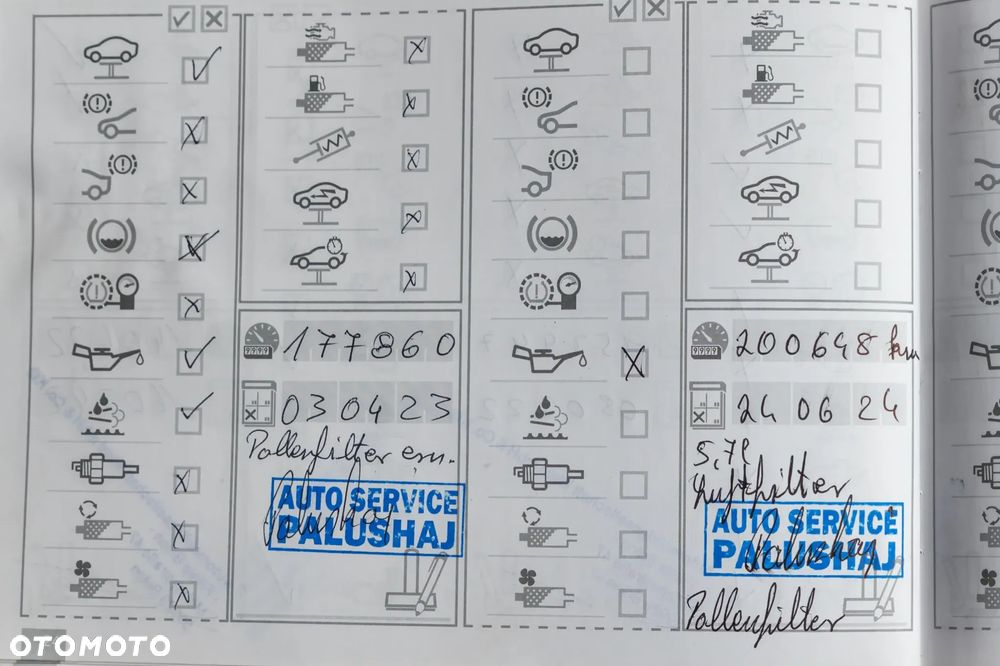 177860
030423
Pollenfilter ern.
AUTO SERVICE
PALUSHAJ
200648 km
24 06 24
5,7l
Luftfilter
AUTO SERVICE
PALUSHAJ
Pollenfilter
OTOMOTO